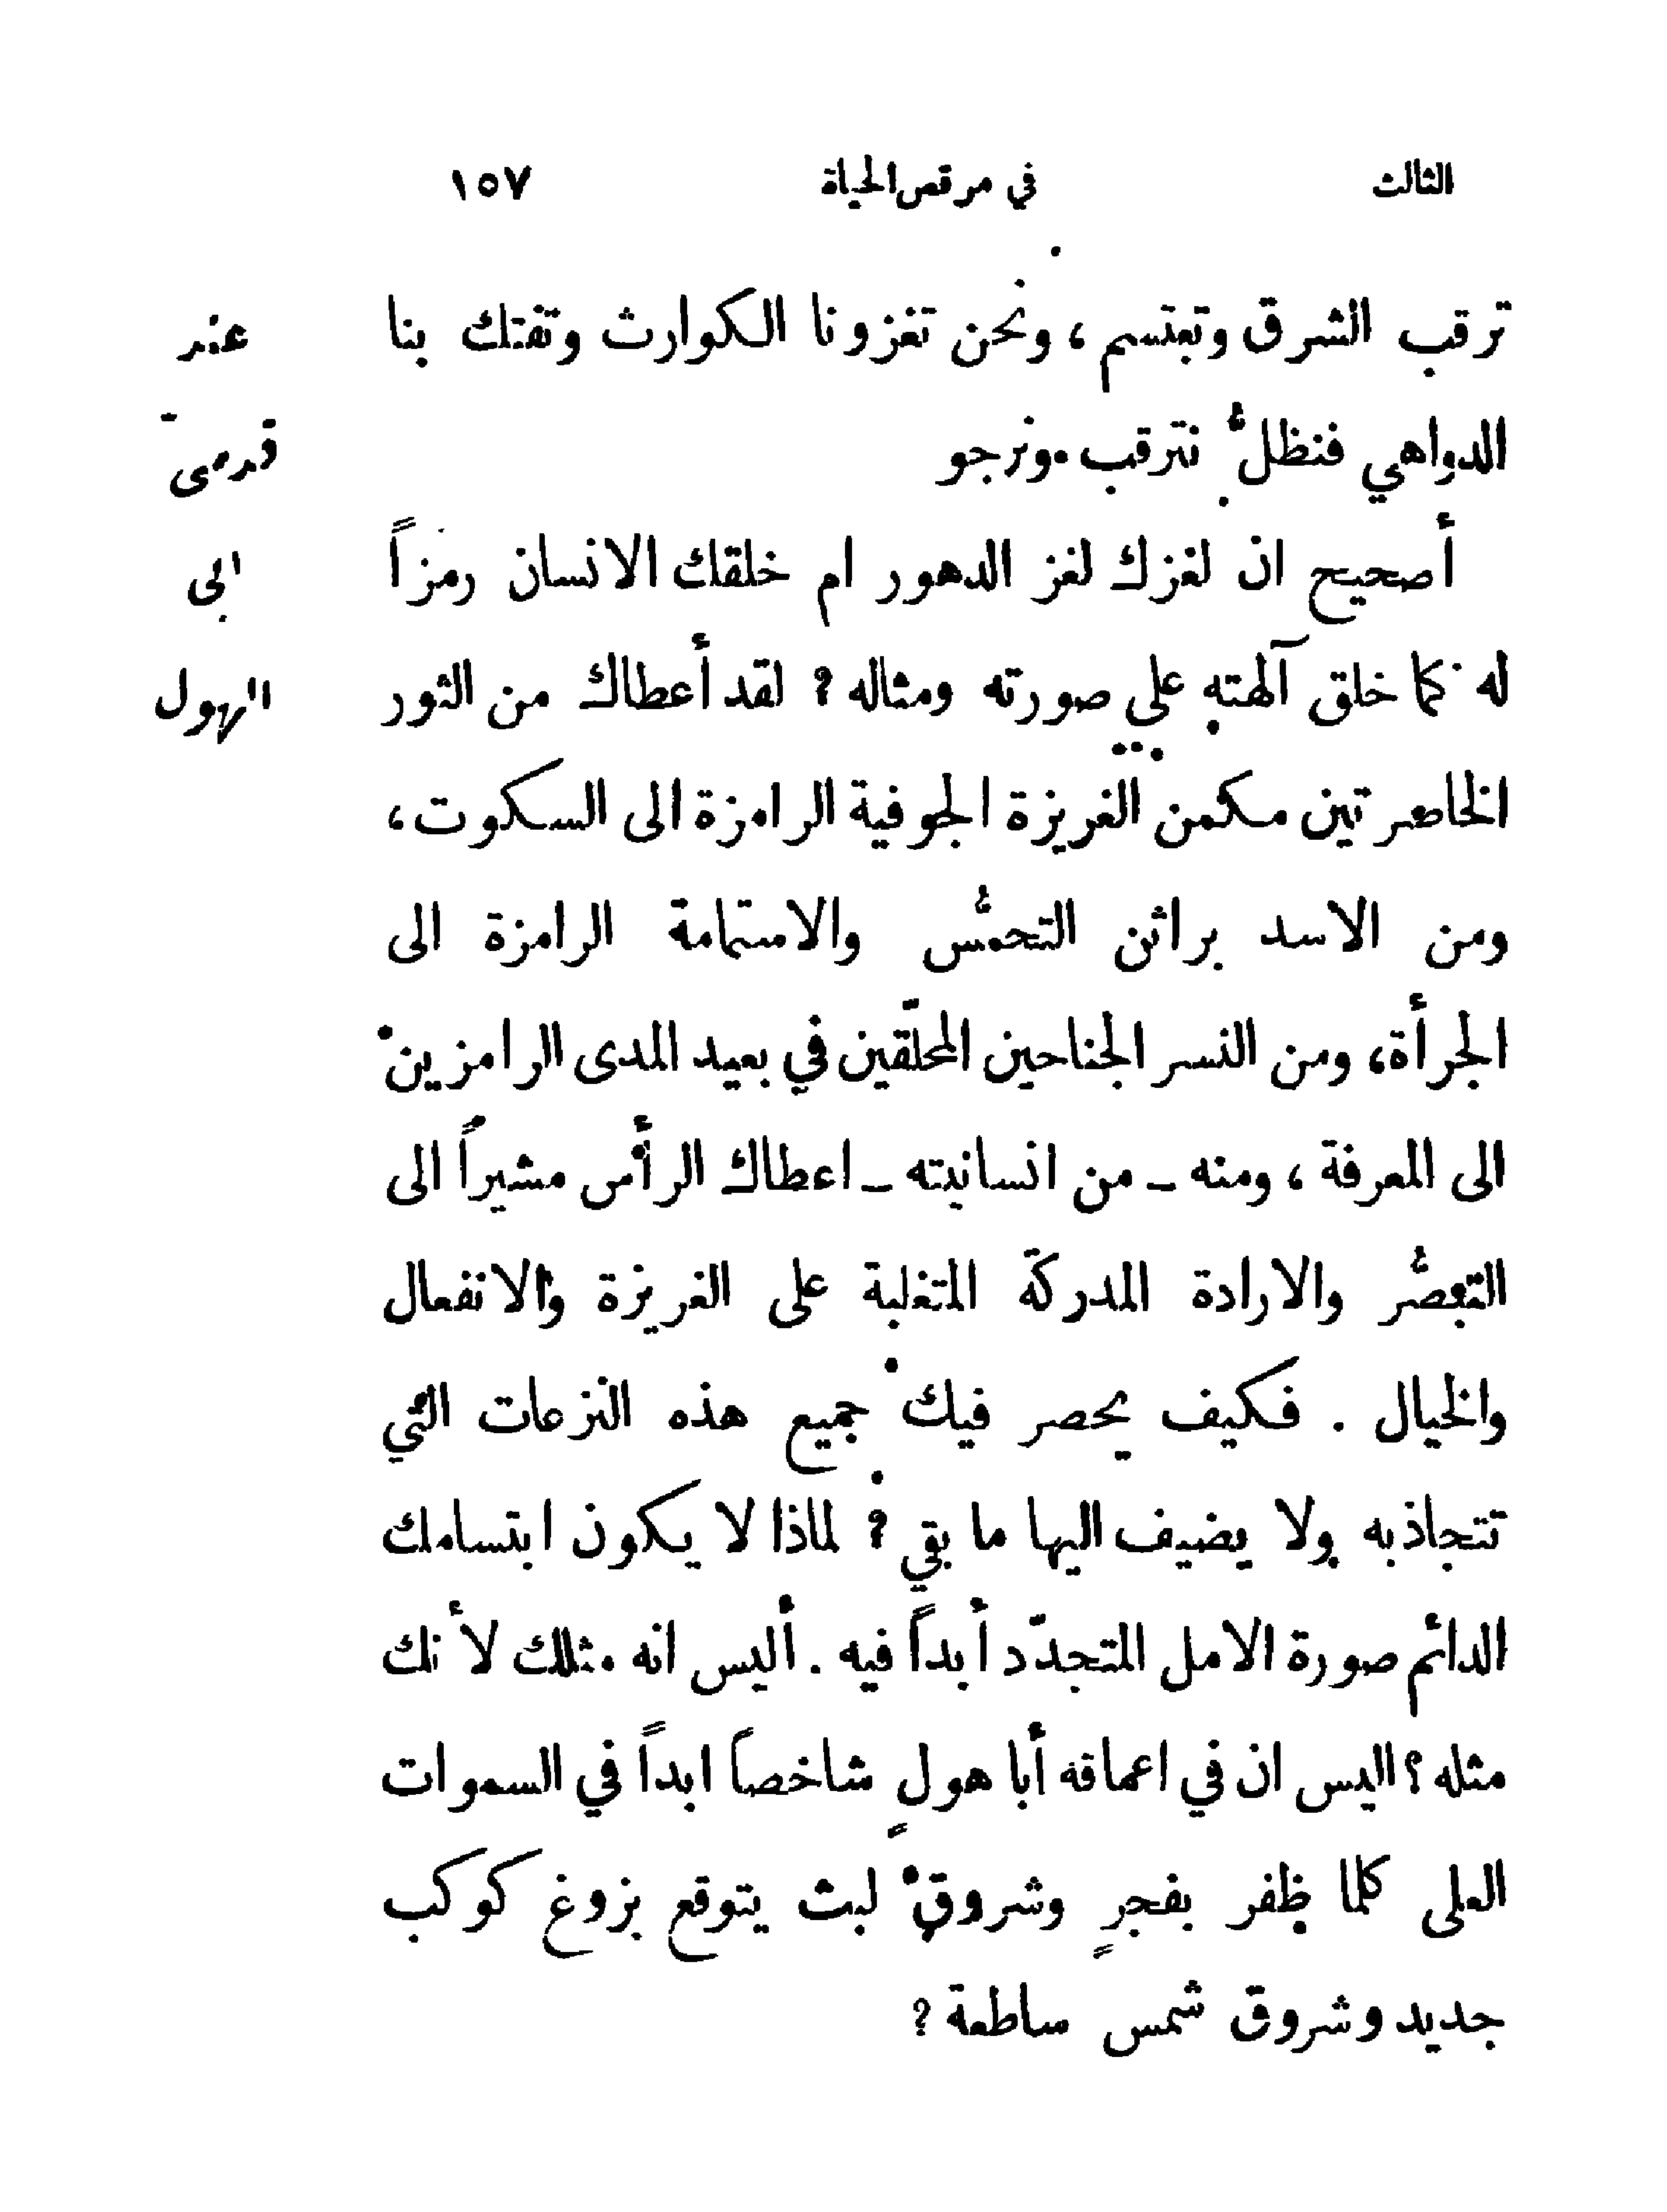 الثالث في مرقص الحياة ١٥٧
ترقب الشرق وتبتسم ، ونحن تغزونا الكوارث وتفتك بنا
الدواهي فنظلُّ نترقب ونرجو
أصحيح ان لغزك لغز الدهور ام خلقك الانسان رمزاً
له كما خلق آلهته على صورته ومثاله ؟ لقد أعطاك من الثور
الخاصرتين مكمن الغريزة الجوفية الرامزة الى السكوت ،
ومن الاسد براثن التحمُّس والاستماتة الرامزة الى
الجرأة ، ومن النسر الجناحين المحلّقين في بعيد المدى الرامزين
الى المعرفة ، ومنه ــ من انسانيته ــ اعطاك الرأس مشيراً الى
التبصُّر والارادة المدركة المتغلبة على الغريزة والانفعال
والخيال . فكيف يحصر فيك جميع هذه النزعات التي
تتجاذبه ولا يضيف اليها ما بقي ؟ لماذا لا يكون ابتسامك
الدائم صورة الامل المتجدّد أبداً فيه . أليس انه مثلك لأنك
مثله ؟ اليس ان في اعماقه أبا هولٍ شاخصاً ابداً في السموات
العلى كلما ظفر بفجرٍ وشروقٍ لبث يتوقع بزوغ كوكب
جديد وشروق شمس ساطعة ؟
عند
قدمى
ابى
الهول